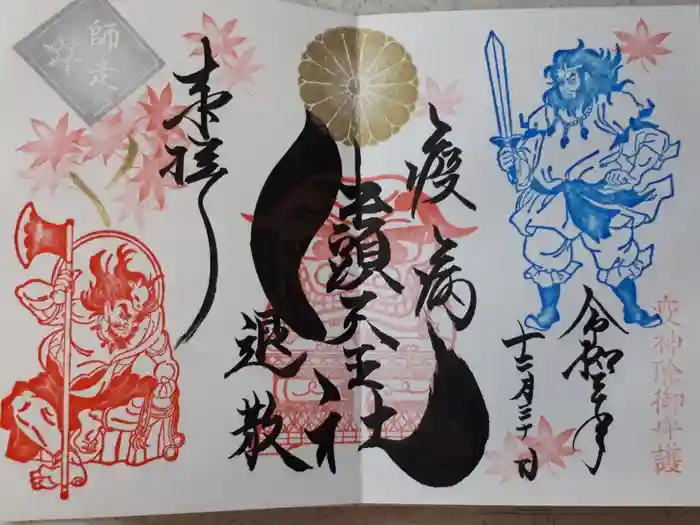 疫神除御守護
令和三年
十二月三十日
疫病
牛頭天王社
散
奉拝
師走